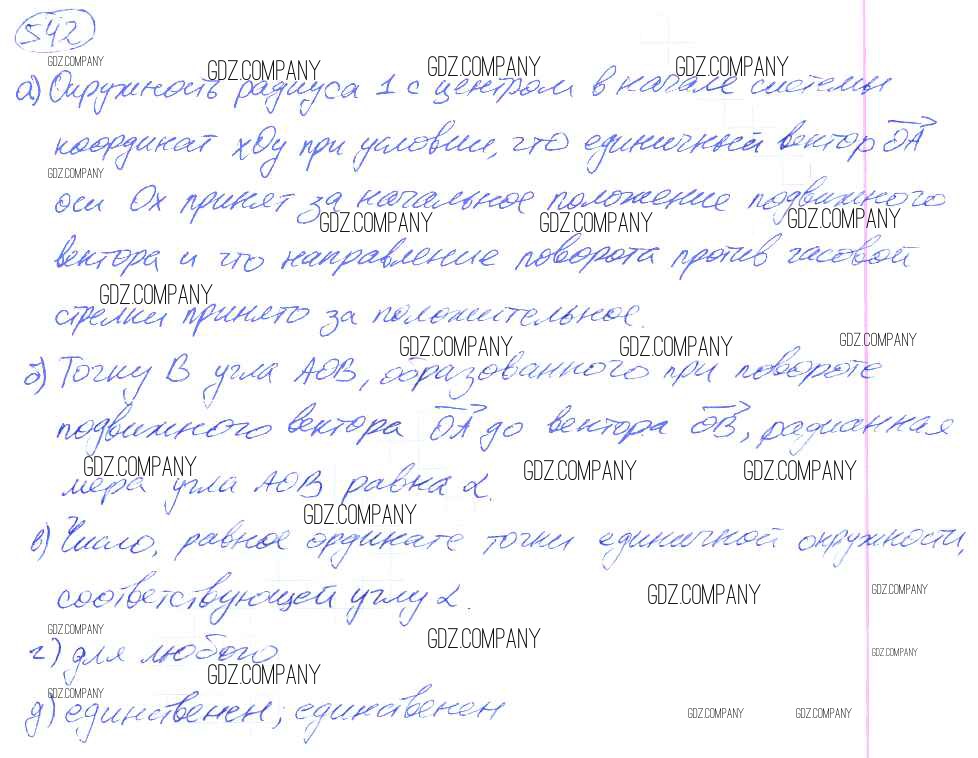 542
GDZ.COMPANY GDZ.COMPANY GDZ.COMPANY GDZ.COMPANY
а) Окружность радиуса 1 с центром в начале системы
координат xOy при условии, что единичный вектор OA
GDZ.COMPANY
оси Ox принят за начальное положение подвижного
GDZ.COMPANY GDZ.COMPANY GDZ.COMPANY
вектора и что направление поворота против часовой
GDZ.COMPANY
стрелки принято за положительное.
GDZ.COMPANY GDZ.COMPANY GDZ.COMPANY
б) Точку B угла AOB, образованного при повороте
подвижного вектора OA до вектора OB, радианная
GDZ.COMPANY GDZ.COMPANY GDZ.COMPANY
мера угла AOB равна α.
GDZ.COMPANY
в) Число, равное ординате точки единичной окружности,
соответствующей углу α.
GDZ.COMPANY GDZ.COMPANY
GDZ.COMPANY GDZ.COMPANY
г) для любого
GDZ.COMPANY
GDZ.COMPANY
GDZ.COMPANY
д) единственен; единственен
GDZ.COMPANY GDZ.COMPANY